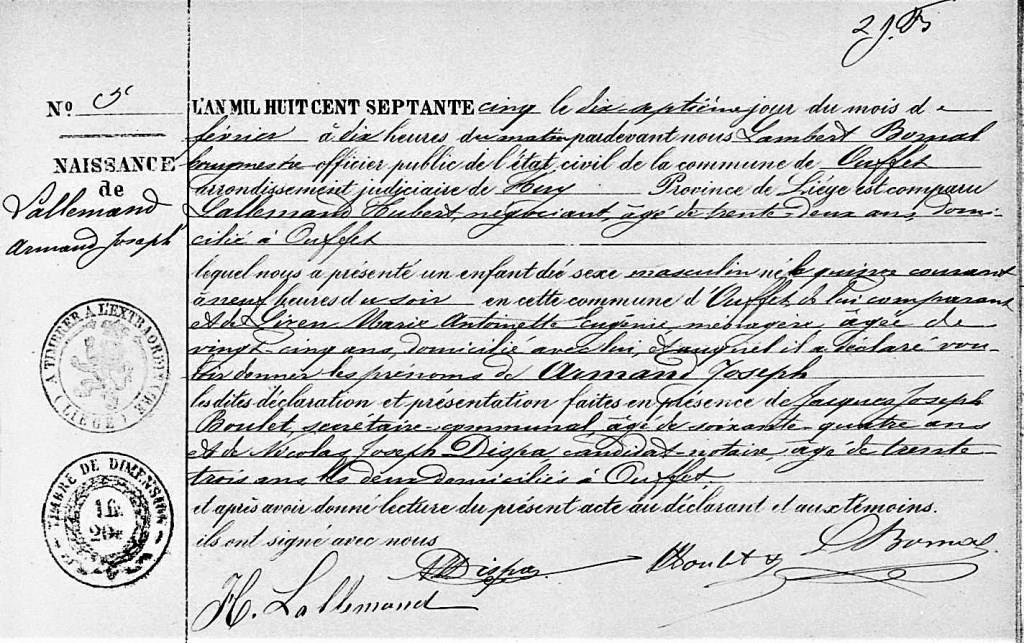 Nº 5
NAISSANCE
de
Lallemand
Armand Joseph
L'AN MIL HUIT CENT SEPTANTE cinq le dix septième jour du mois de
février à dix heures du matin pardevant nous Lambert Bornal
bourgmestre officier public de l'état civil de la commune de Ouffet
arrondissement judiciaire de Huy Province de Liége est comparu
Lallemand Hubert, négociant, âgé de trente-deux ans, domi-
cilié à Ouffet
lequel nous a présenté un enfant du sexe masculin né le quinze courant
à neuf heures du soir en cette commune d'Ouffet, de lui comparant
et de Marie Antoinette Eugénie, ménagère, âgée de
vingt-cinq ans, domicilié avec lui, et auquel il a déclaré vou-
loir donner les prénoms de Armand Joseph
les dites déclaration et présentation faites en présence de Jacques Joseph
Boulet, secrétaire communal âgé de soixante-quatre ans
et de Nicolas Joseph Dispa candidat-notaire, âgé de trente
trois ans les deux domiciliés à Ouffet.
et après avoir donné lecture du présent acte au déclarant et aux témoins.
ils ont signé avec nous
Dispa
LBornal
H. Lallemand
A TIMBRER A L'EXTRAORDINAIRE
(LIÉGE)
TIMBRE DE DIMENSION
1 fr.
20c